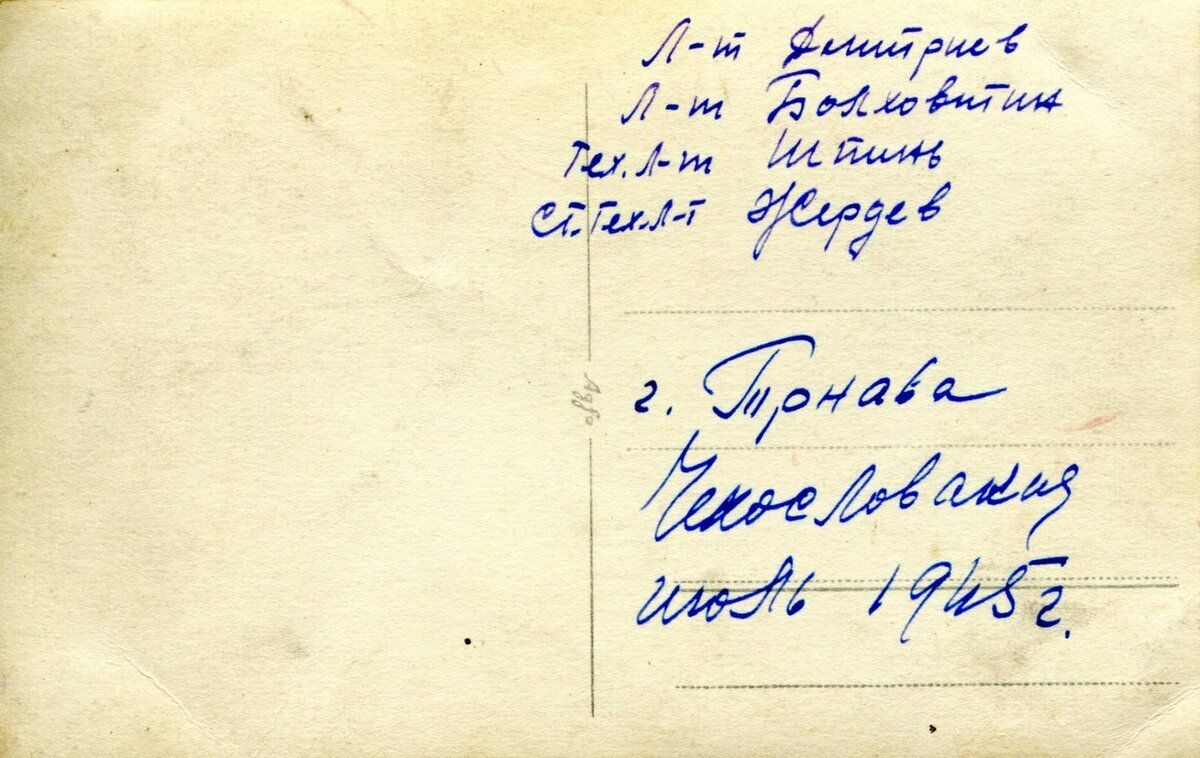 Л-т Дмитриев
Л-т Болховитин
Тех. Л-т Шпинь
Ст. Тех. Л-т Жердев
Agfa
г. Трнава
Чехословакия
июль 1945 г.